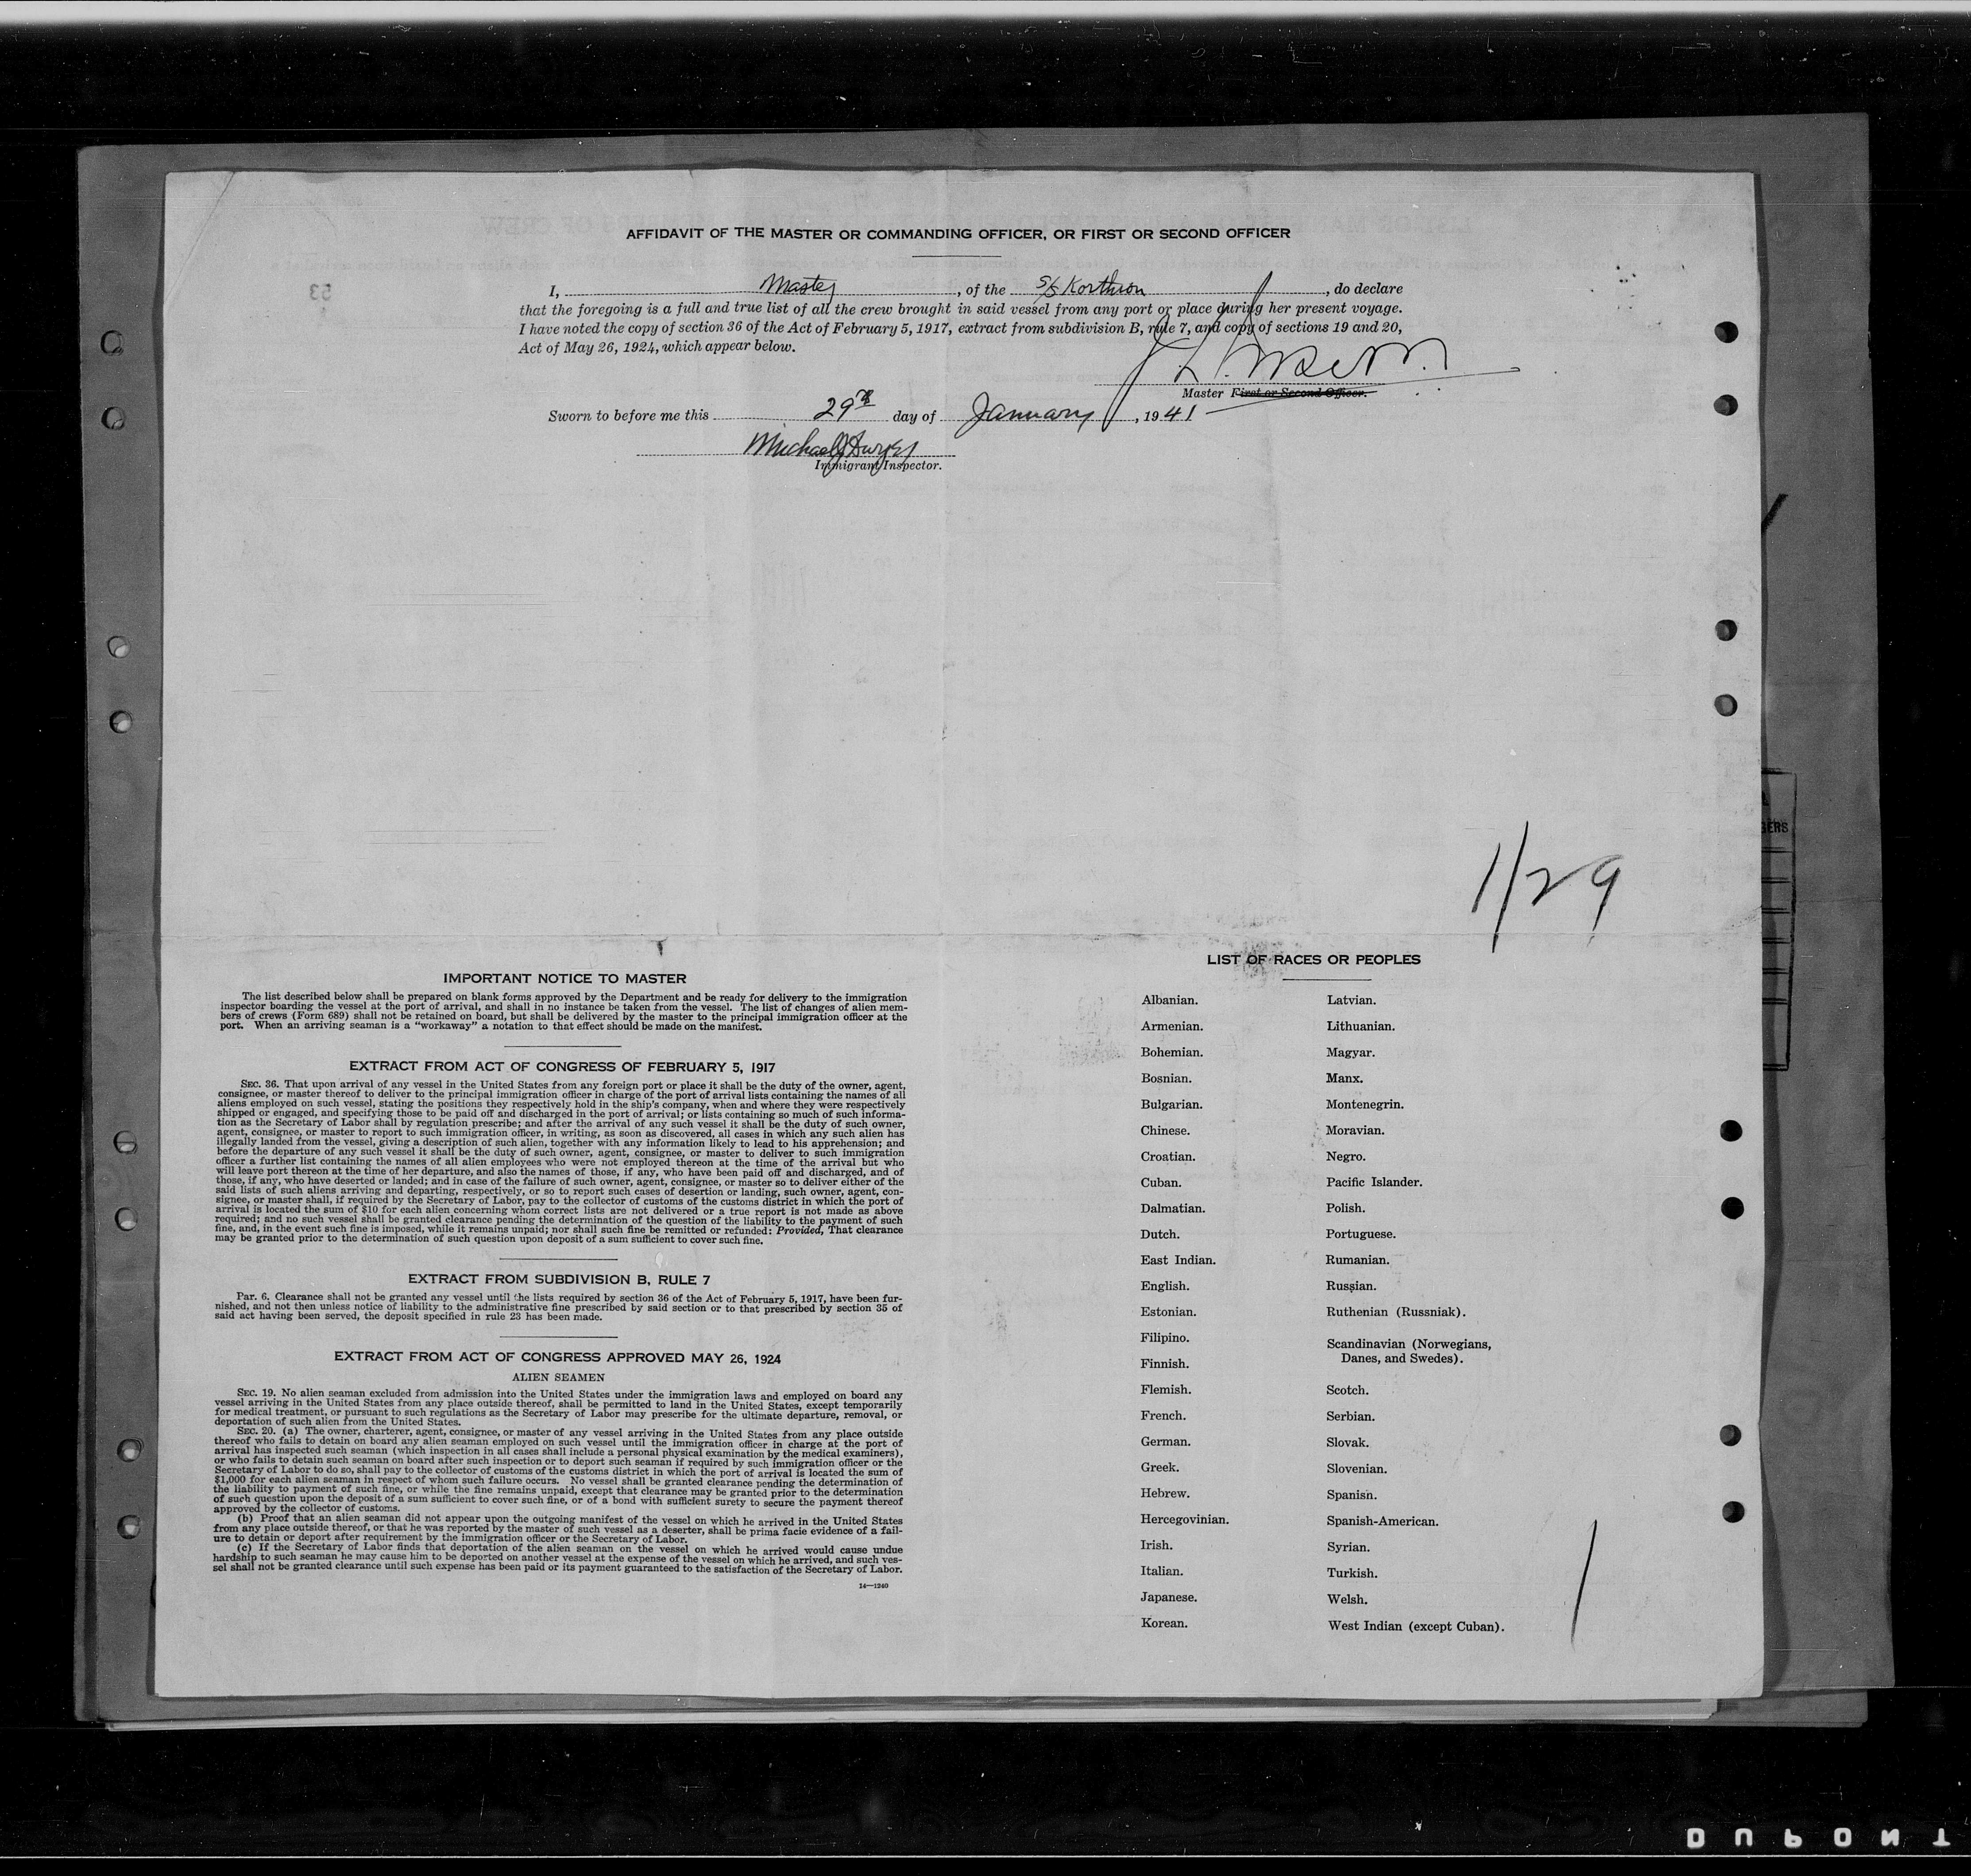 AFFIDAVIT OF THE MASTER OR COMMANDING OFFICER, OR FIRST OR SECOND OFFICER
I, Master, of the S/S Korthion, do declare
that the foregoing is a full and true list of all the crew brought in said vessel from any port or place during her present voyage.
I have noted the copy of section 36 of the Act of February 5, 1917, extract from subdivision B, rule 7, and copy of sections 19 and 20,
Act of May 26, 1924, which appear below.
Master First or Second Officer.
Sworn to before me this 29th day of January, 1941
Michael J Dwyer
Immigrant Inspector.
1/29
IMPORTANT NOTICE TO MASTER
The list described below shall be prepared on blank forms approved by the Department and be ready for delivery to the immigration
inspector boarding the vessel at the port of arrival, and shall in no instance be taken from the vessel. The list of changes of alien mem-
bers of crews (Form 689) shall not be retained on board, but shall be delivered by the master to the principal immigration officer at the
port. When an arriving seaman is a "workaway" a notation to that effect should be made on the manifest.
EXTRACT FROM ACT OF CONGRESS OF FEBRUARY 5, 1917
SEC. 36. That upon arrival of any vessel in the United States from any foreign port or place it shall be the duty of the owner, agent,
consignee, or master thereof to deliver to the principal immigration officer in charge of the port of arrival lists containing the names of all
aliens employed on such vessel, stating the positions they respectively hold in the ship's company, when and where they were respectively
shipped or engaged, and specifying those to be paid off and discharged in the port of arrival; or lists containing so much of such informa-
tion as the Secretary of Labor shall by regulation prescribe; and after the arrival of any such vessel it shall be the duty of such owner,
agent, consignee, or master to report to such immigration officer, in writing, as soon as discovered, all cases in which any such alien has
illegally landed from the vessel, giving a description of such alien, together with any information likely to lead to his apprehension; and
before the departure of any such vessel it shall be the duty of such owner, agent, consignee, or master to deliver to such immigration
officer a further list containing the names of all alien employees who were not employed thereon at the time of the arrival but who
will leave port thereon at the time of her departure, and also the names of those, if any, who have been paid off and discharged, and of
those, if any, who have deserted or landed; and in case of the failure of such owner, agent, consignee, or master so to deliver either of the
said lists of such aliens arriving and departing, respectively, or so to report such cases of desertion or landing, such owner, agent, con-
signee, or master shall, if required by the Secretary of Labor, pay to the collector of customs of the customs district in which the port of
arrival is located the sum of $10 for each alien concerning whom correct lists are not delivered or a true report is not made as above
required; and no such vessel shall be granted clearance pending the determination of the question of the liability to the payment of such
fine, and, in the event such fine is imposed, while it remains unpaid; nor shall such fine be remitted or refunded: Provided, That clearance
may be granted prior to the determination of such question upon deposit of a sum sufficient to cover such fine.
EXTRACT FROM SUBDIVISION B, RULE 7
Par. 6. Clearance shall not be granted any vessel until the lists required by section 36 of the Act of February 5, 1917, have been fur-
nished, and not then unless notice of liability to the administrative fine prescribed by said section or to that prescribed by section 35 of
said act having been served, the deposit specified in rule 23 has been made.
EXTRACT FROM ACT OF CONGRESS APPROVED MAY 26, 1924
ALIEN SEAMEN
SEC. 19. No alien seaman excluded from admission into the United States under the immigration laws and employed on board any
vessel arriving in the United States from any place outside thereof, shall be permitted to land in the United States, except temporarily
for medical treatment, or pursuant to such regulations as the Secretary of Labor may prescribe for the ultimate departure, removal, or
deportation of such alien from the United States.
SEC. 20. (a) The owner, charterer, agent, consignee, or master of any vessel arriving in the United States from any place outside
thereof who fails to detain on board any alien seaman employed on such vessel until the immigration officer in charge at the port of
arrival has inspected such seaman (which inspection in all cases shall include a personal physical examination by the medical examiners),
or who fails to detain such seaman on board after such inspection or to deport such seaman if required by such immigration officer or the
Secretary of Labor to do so, shall pay to the collector of customs of the customs district in which the port of arrival is located the sum of
$1,000 for each alien seaman in respect of whom such failure occurs. No vessel shall be granted clearance pending the determination of
the liability to payment of such fine, or while the fine remains unpaid, except that clearance may be granted prior to the determination
of such question upon the deposit of a sum sufficient to cover such fine, or of a bond with sufficient surety to secure the payment thereof
approved by the collector of customs.
(b) Proof that an alien seaman did not appear upon the outgoing manifest of the vessel on which he arrived in the United States
from any place outside thereof, or that he was reported by the master of such vessel as a deserter, shall be prima facie evidence of a fail-
ure to detain or deport after requirement by the immigration officer or the Secretary of Labor.
(c) If the Secretary of Labor finds that deportation of the alien seaman on the vessel on which he arrived would cause undue
hardship to such seaman he may cause him to be deported on another vessel at the expense of the vessel on which he arrived, and such ves-
sel shall not be granted clearance until such expense has been paid or its payment guaranteed to the satisfaction of the Secretary of Labor.
14—1240
LIST OF RACES OR PEOPLES
Albanian.
Armenian.
Bohemian.
Bosnian.
Bulgarian.
Chinese.
Croatian.
Cuban.
Dalmatian.
Dutch.
East Indian.
English.
Estonian.
Filipino.
Finnish.
Flemish.
French.
German.
Greek.
Hebrew.
Hercegovinian.
Irish.
Italian.
Japanese.
Korean.
Latvian.
Lithuanian.
Magyar.
Manx.
Montenegrin.
Moravian.
Negro.
Pacific Islander.
Polish.
Portuguese.
Rumanian.
Russian.
Ruthenian (Russniak).
Scandinavian (Norwegians,
Danes, and Swedes).
Scotch.
Serbian.
Slovak.
Slovenian.
Spanish.
Spanish-American.
Syrian.
Turkish.
Welsh.
West Indian (except Cuban).
DUPONT